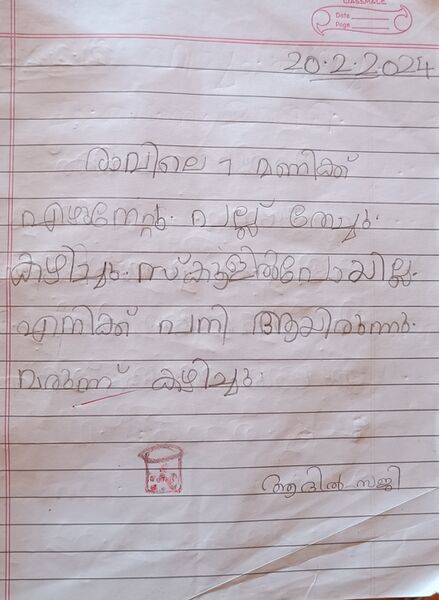 CLASSMATE
Date
Page
20.2.2024
രാവിലെ 7 മണിക്ക്
എഴുന്നേറ്റു. പല്ല് തേച്ചു.
കഴിച്ചു. സ്കൂളിൽപോയില്ല.
എനിക്ക് പനി ആയിരുന്നു.
മരുന്ന് കഴിച്ചു.
ആദിൽ സജി